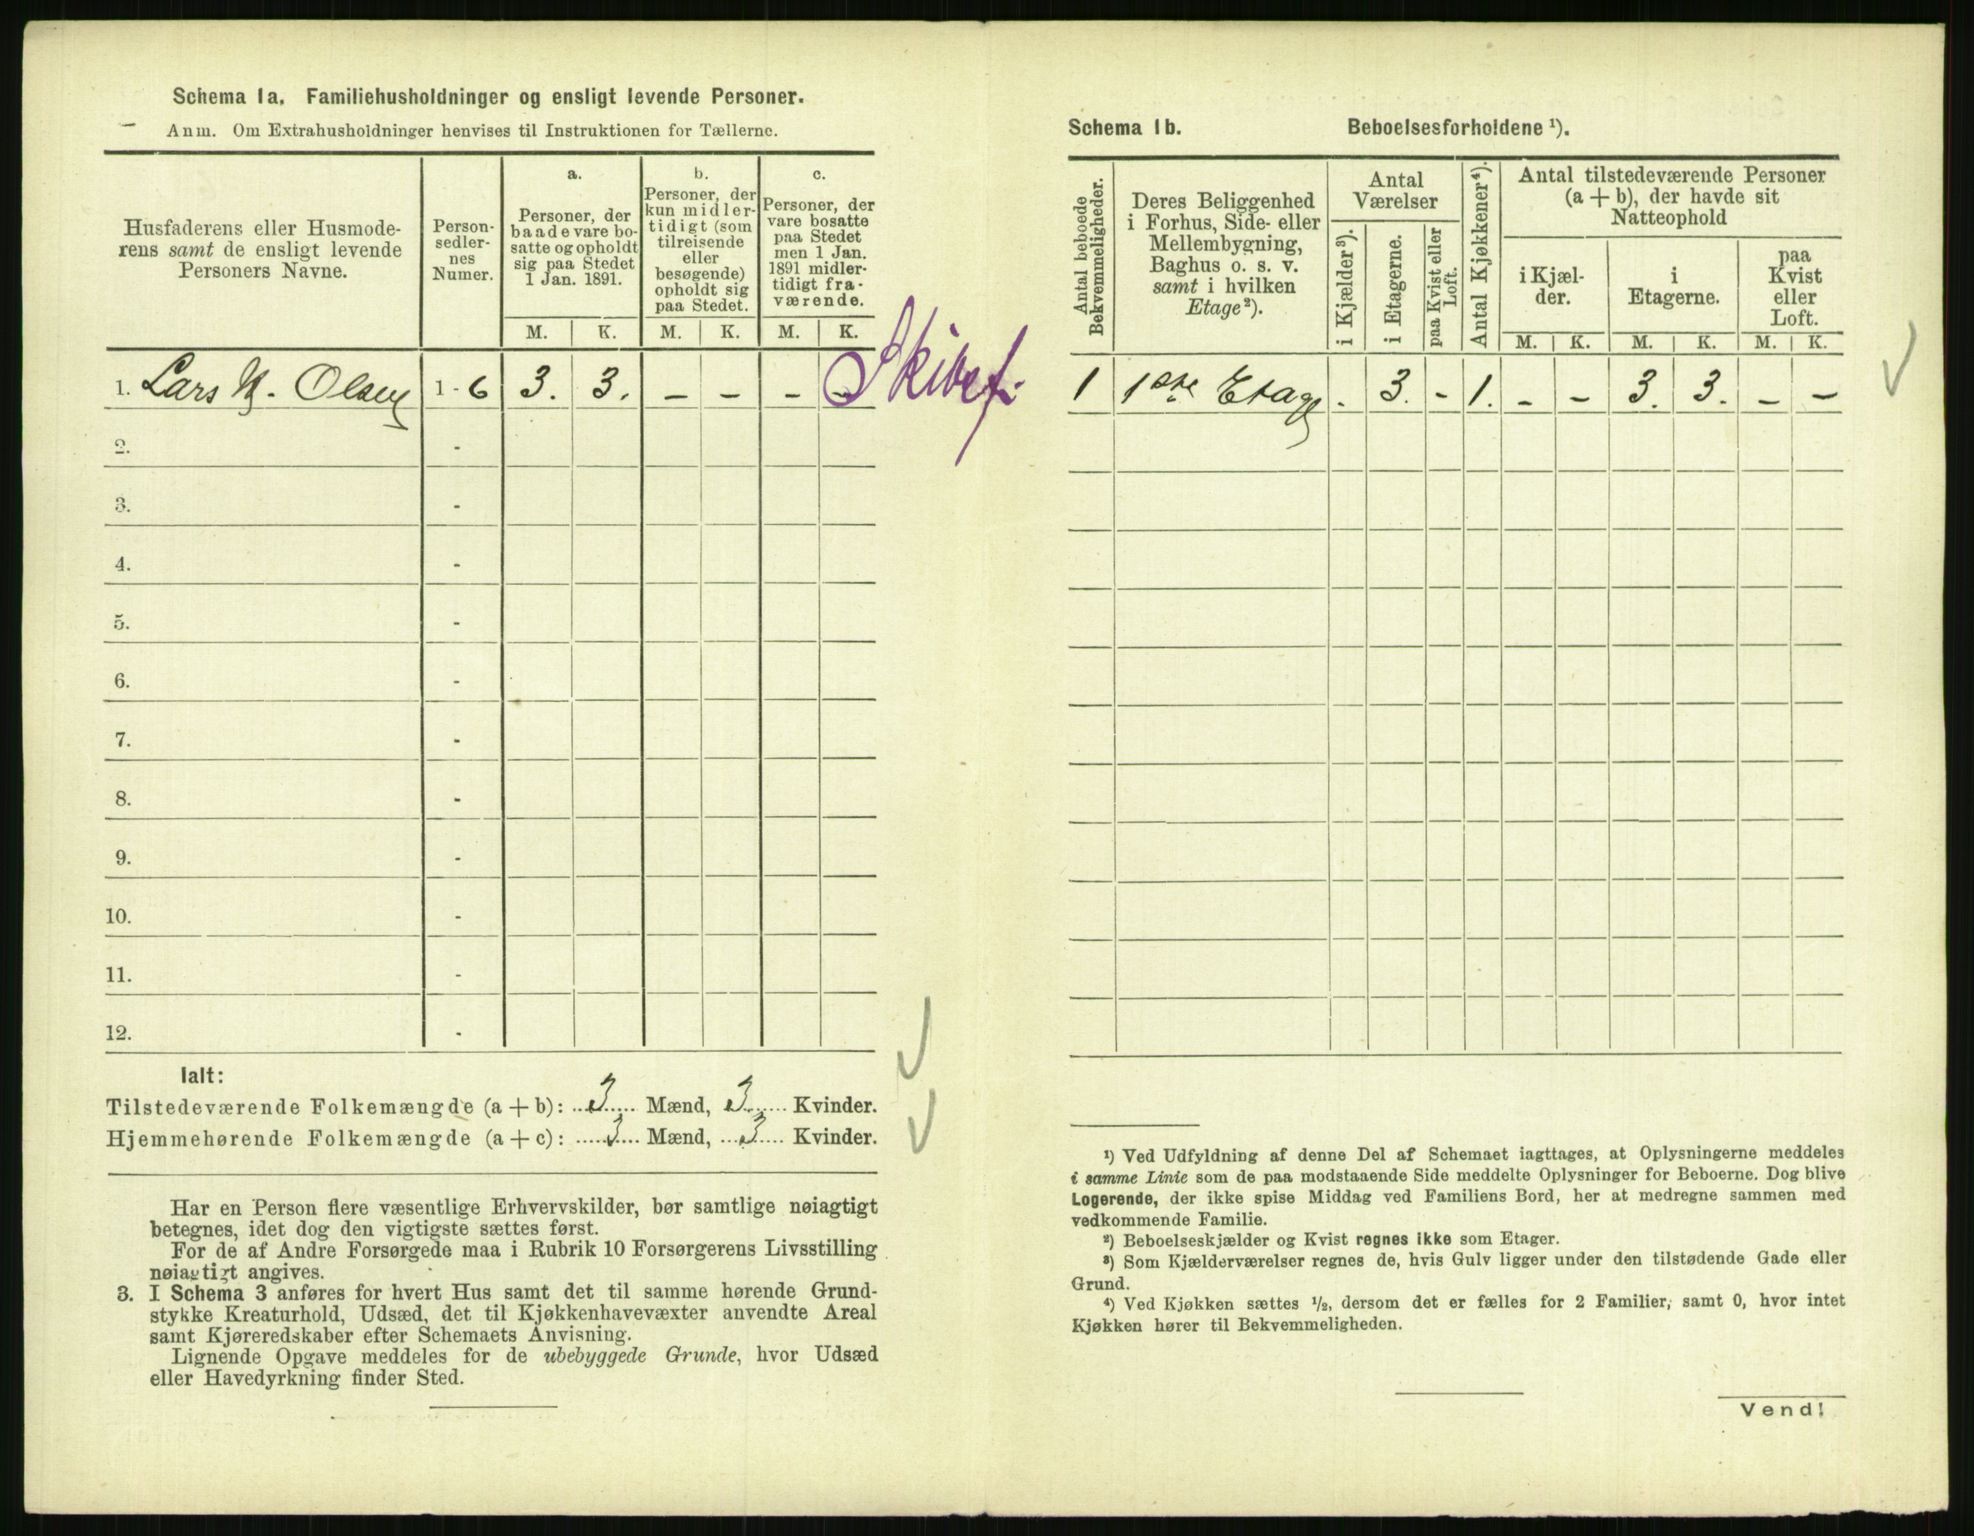 Schema 1a. Familiehusholdninger og ensligt levende Personer.
Anm. Om Extrahusholdninger henvises til Instruktionen for Tællerne.
Husfaderens eller Husmoderens samt de ensligt levende Personers Navne.
Person-sedler-nes Numer.
a.
Personer, der baade vare bosatte og opholdt sig paa Stedet 1 Jan. 1891.
b.
Personer, der kun midlertidigt (som tilreisende eller besøgende) opholdt sig paa Stedet.
c.
Personer, der vare bosatte paa Stedet men 1 Jan. 1891 midlertidigt fraværende.
M. K. M. K. M. K.
1. Lars Olsen 1-6 3. 3. – – – –
2. -
3. -
4. -
5. -
6. -
7. -
8. -
9. -
10. -
11. -
12. -
Ialt:
Tilstedeværende Folkemængde (a + b): 3 Mænd, 3 Kvinder.
Hjemmehørende Folkemængde (a + c): 3 Mænd, 3 Kvinder.
Har en Person flere væsentlige Erhvervskilder, bør samtlige nøiagtigt
betegnes, idet dog den vigtigste sættes først.
For de af Andre Forsørgede maa i Rubrik 10 Forsørgerens Livsstilling
nøiagtigt angives.
3. I Schema 3 anføres for hvert Hus samt det til samme hørende Grund-
stykke Kreaturhold, Udsæd, det til Kjøkkenhavevæxter anvendte Areal
samt Kjøreredskaber efter Schemaets Anvisning.
Lignende Opgave meddeles for de ubebyggede Grunde, hvor Udsæd
eller Havedyrkning finder Sted.
Schema 1b. Beboelsesforholdene ¹).
Antal beboede Bekvemmeligheder.
Deres Beliggenhed i Forhus, Side- eller Mellembygning, Baghus o. s. v. samt i hvilken Etage²).
Antal Værelser
i Kjælder³).
i Etagerne.
paa Kvist eller Loft.
Antal Kjøkkener⁴).
Antal tilstedeværende Personer (a + b), der havde sit Natteophold
i Kjælder.
i Etagerne.
paa Kvist eller Loft.
M. K. M. K. M. K.
1 1ste Etage - 3. - 1. – – 3. 3. – –
¹) Ved Udfyldning af denne Del af Schemaet iagttages, at Oplysningerne meddeles
i samme Linie som de paa modstaaende Side meddelte Oplysninger for Beboerne. Dog blive
Logerende, der ikke spise Middag ved Familiens Bord, her at medregne sammen med
vedkommende Familie.
²) Beboelseskjælder og Kvist regnes ikke som Etager.
³) Som Kjælderværelser regnes de, hvis Gulv ligger under den tilstødende Gade eller
Grund.
⁴) Ved Kjøkken sættes ½, dersom det er fælles for 2 Familier, samt 0, hvor intet
Kjøkken hører til Bekvemmeligheden.
Vend!